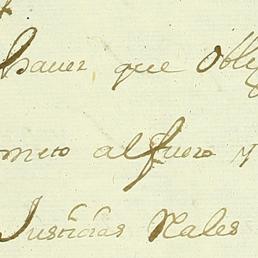 hauer que Obli
meto al fuero y
Justicias Rales